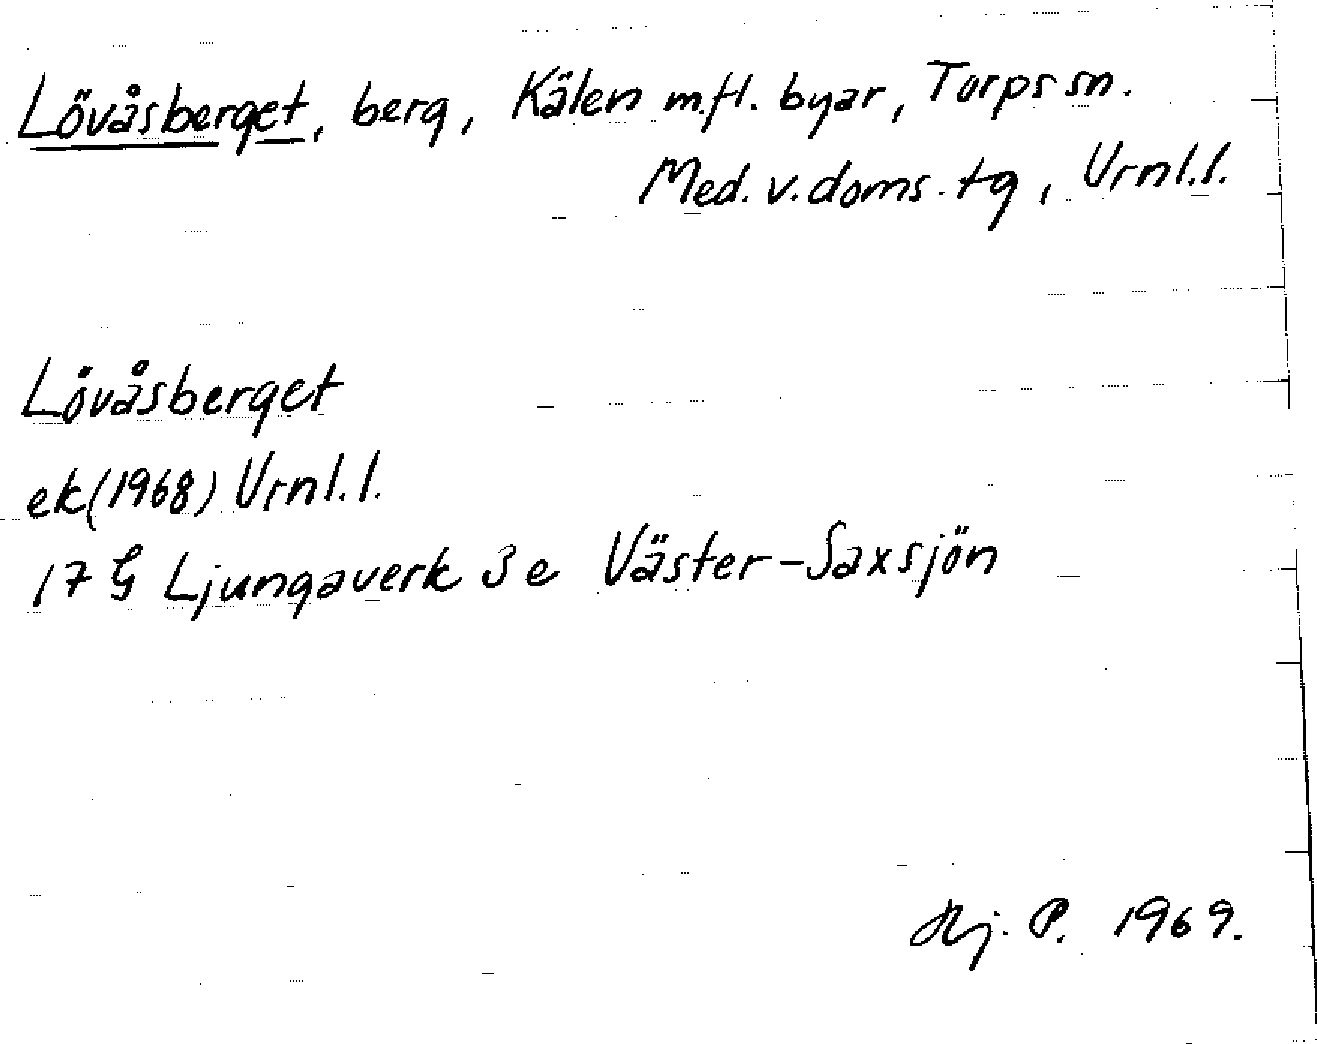 Lövåsberget, berg, Kälen m.fl. byar, Torps sn.
Med. v. doms. tg, Vrnl.l.
Lövåsberget
ek (1968) Vrnl.l.
17 G Ljungaverk 3 e Väster-Saxsjön
Hj. P. 1969.